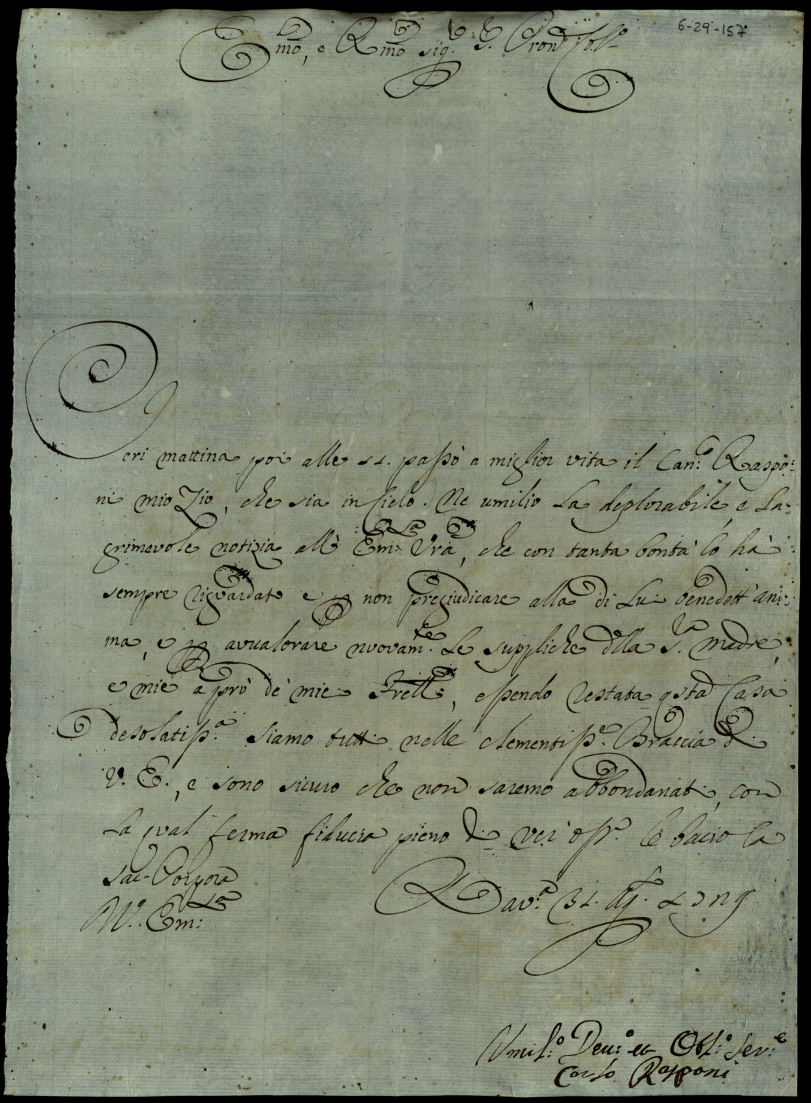 6-29-157
Emo, e Rmo sig. S. Pron Coll.o
Ieri mattina poi alle 11. passò a miglior vita il Can.o Raspo-
ni mio Zio, che sia in Cielo. Ne umilio la deplorabile, e la-
grimevole notizia all' Em.za Vra, che con tanta bontà lo hà
sempre riguardato e p non pregiudicare alla di Lui benedett' ani-
ma, e p avvalorare nuovam.te le suppliche dlla S.ra Madre,
e mie a prò de' miei Frelli, essendo restata qsta Casa
desolatiss.a Siamo tutti nelle clementiss.e Braccia di
V. E., e sono sicuro che non saremo abbondanati, con
la qual ferma fiducia pieno di ver' oss.o le bacio la
Sac. Porpora
V. Em.za
Rav.a 31.
Umil.o Dev.o et Obl.o Ser.e
Carlo Rasponi